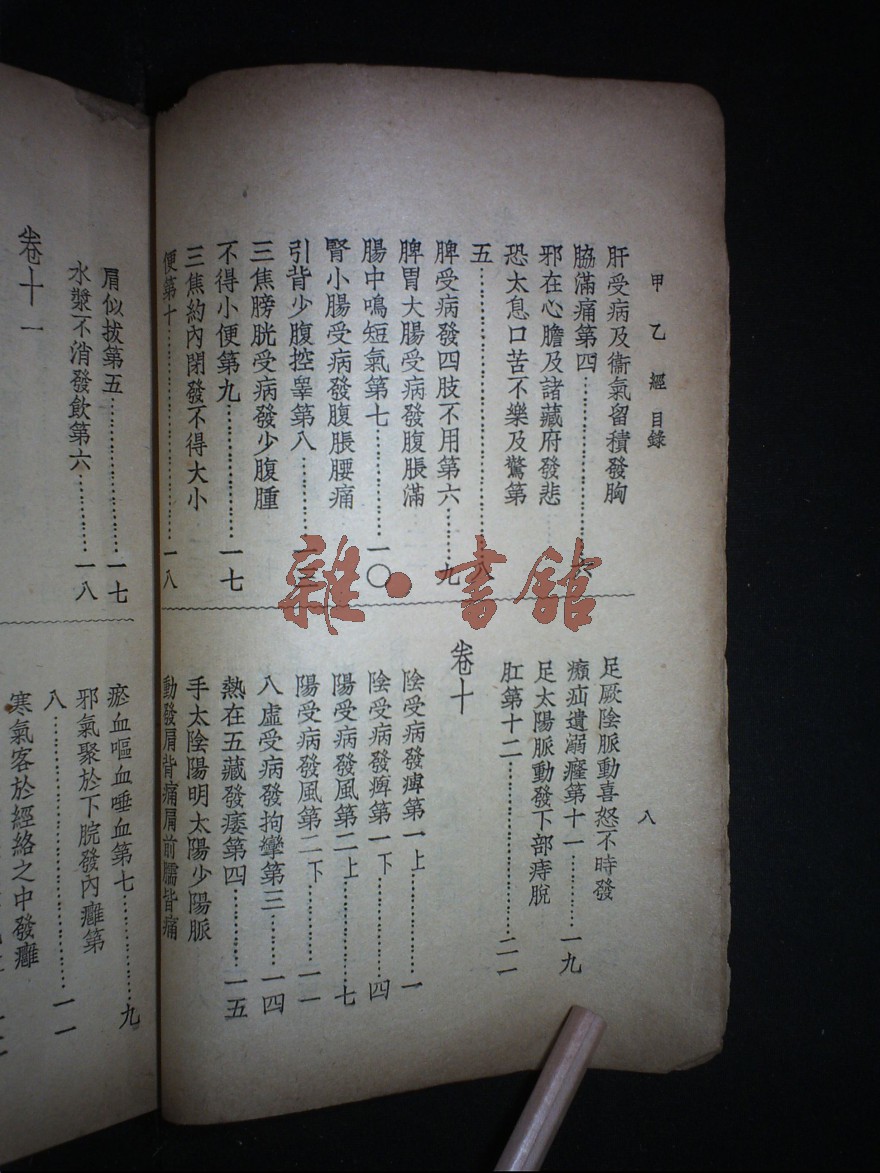 甲乙經 目錄
八
肝受病及衞氣留積發胸
脇滿痛第四………六
邪在心膽及諸藏府發悲
恐太息口苦不樂及驚第
五………八
脾受病發四肢不用第六………九
脾胃大腸受病發腹脹滿
腸中鳴短氣第七………一〇
腎小腸受病發腹脹腰痛
引背少腹控睾第八………一三
三焦膀胱受病發少腹腫
不得小便第九………一七
三焦約內閉發不得大小
便第十………一八
足厥陰脈動喜怒不時發
㿗疝遺溺癃第十一………一九
足太陽脈動發下部痔脫
肛第十二………二一
卷十
陰受病發痺第一上………一
陰受病發痺第一下………四
陽受病發風第二上………七
陽受病發風第二下………一一
八虛受病發拘攣第三………一四
熱在五藏發痿第四………一五
手太陰陽明太陽少陽脈
動發肩背痛肩前臑皆痛
肩似拔第五………一七
水漿不消發飲第六………一八
卷十一
瘀血嘔血唾血第七………九
邪氣聚於下脘發內癰第
八………一一
寒氣客於經絡之中發癰
雜·書館